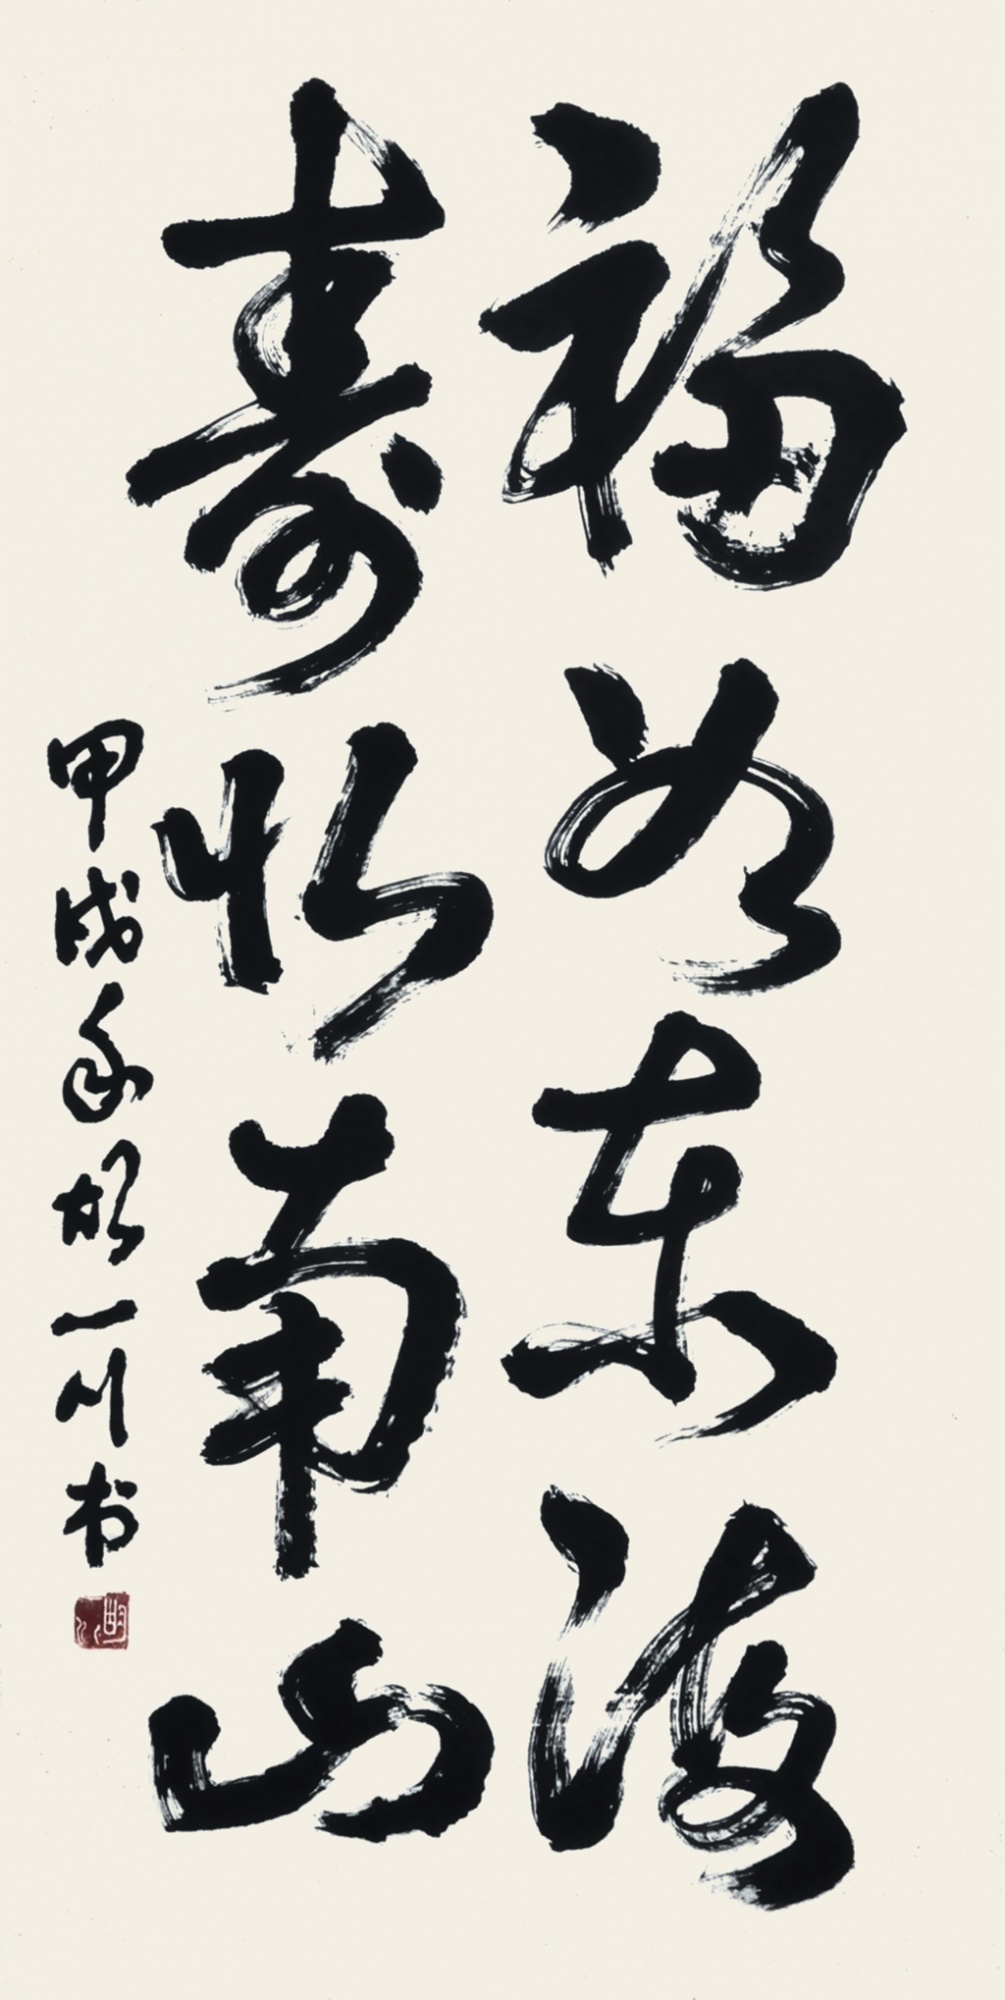 福如东海
寿比南山
甲戌年 胡一川书